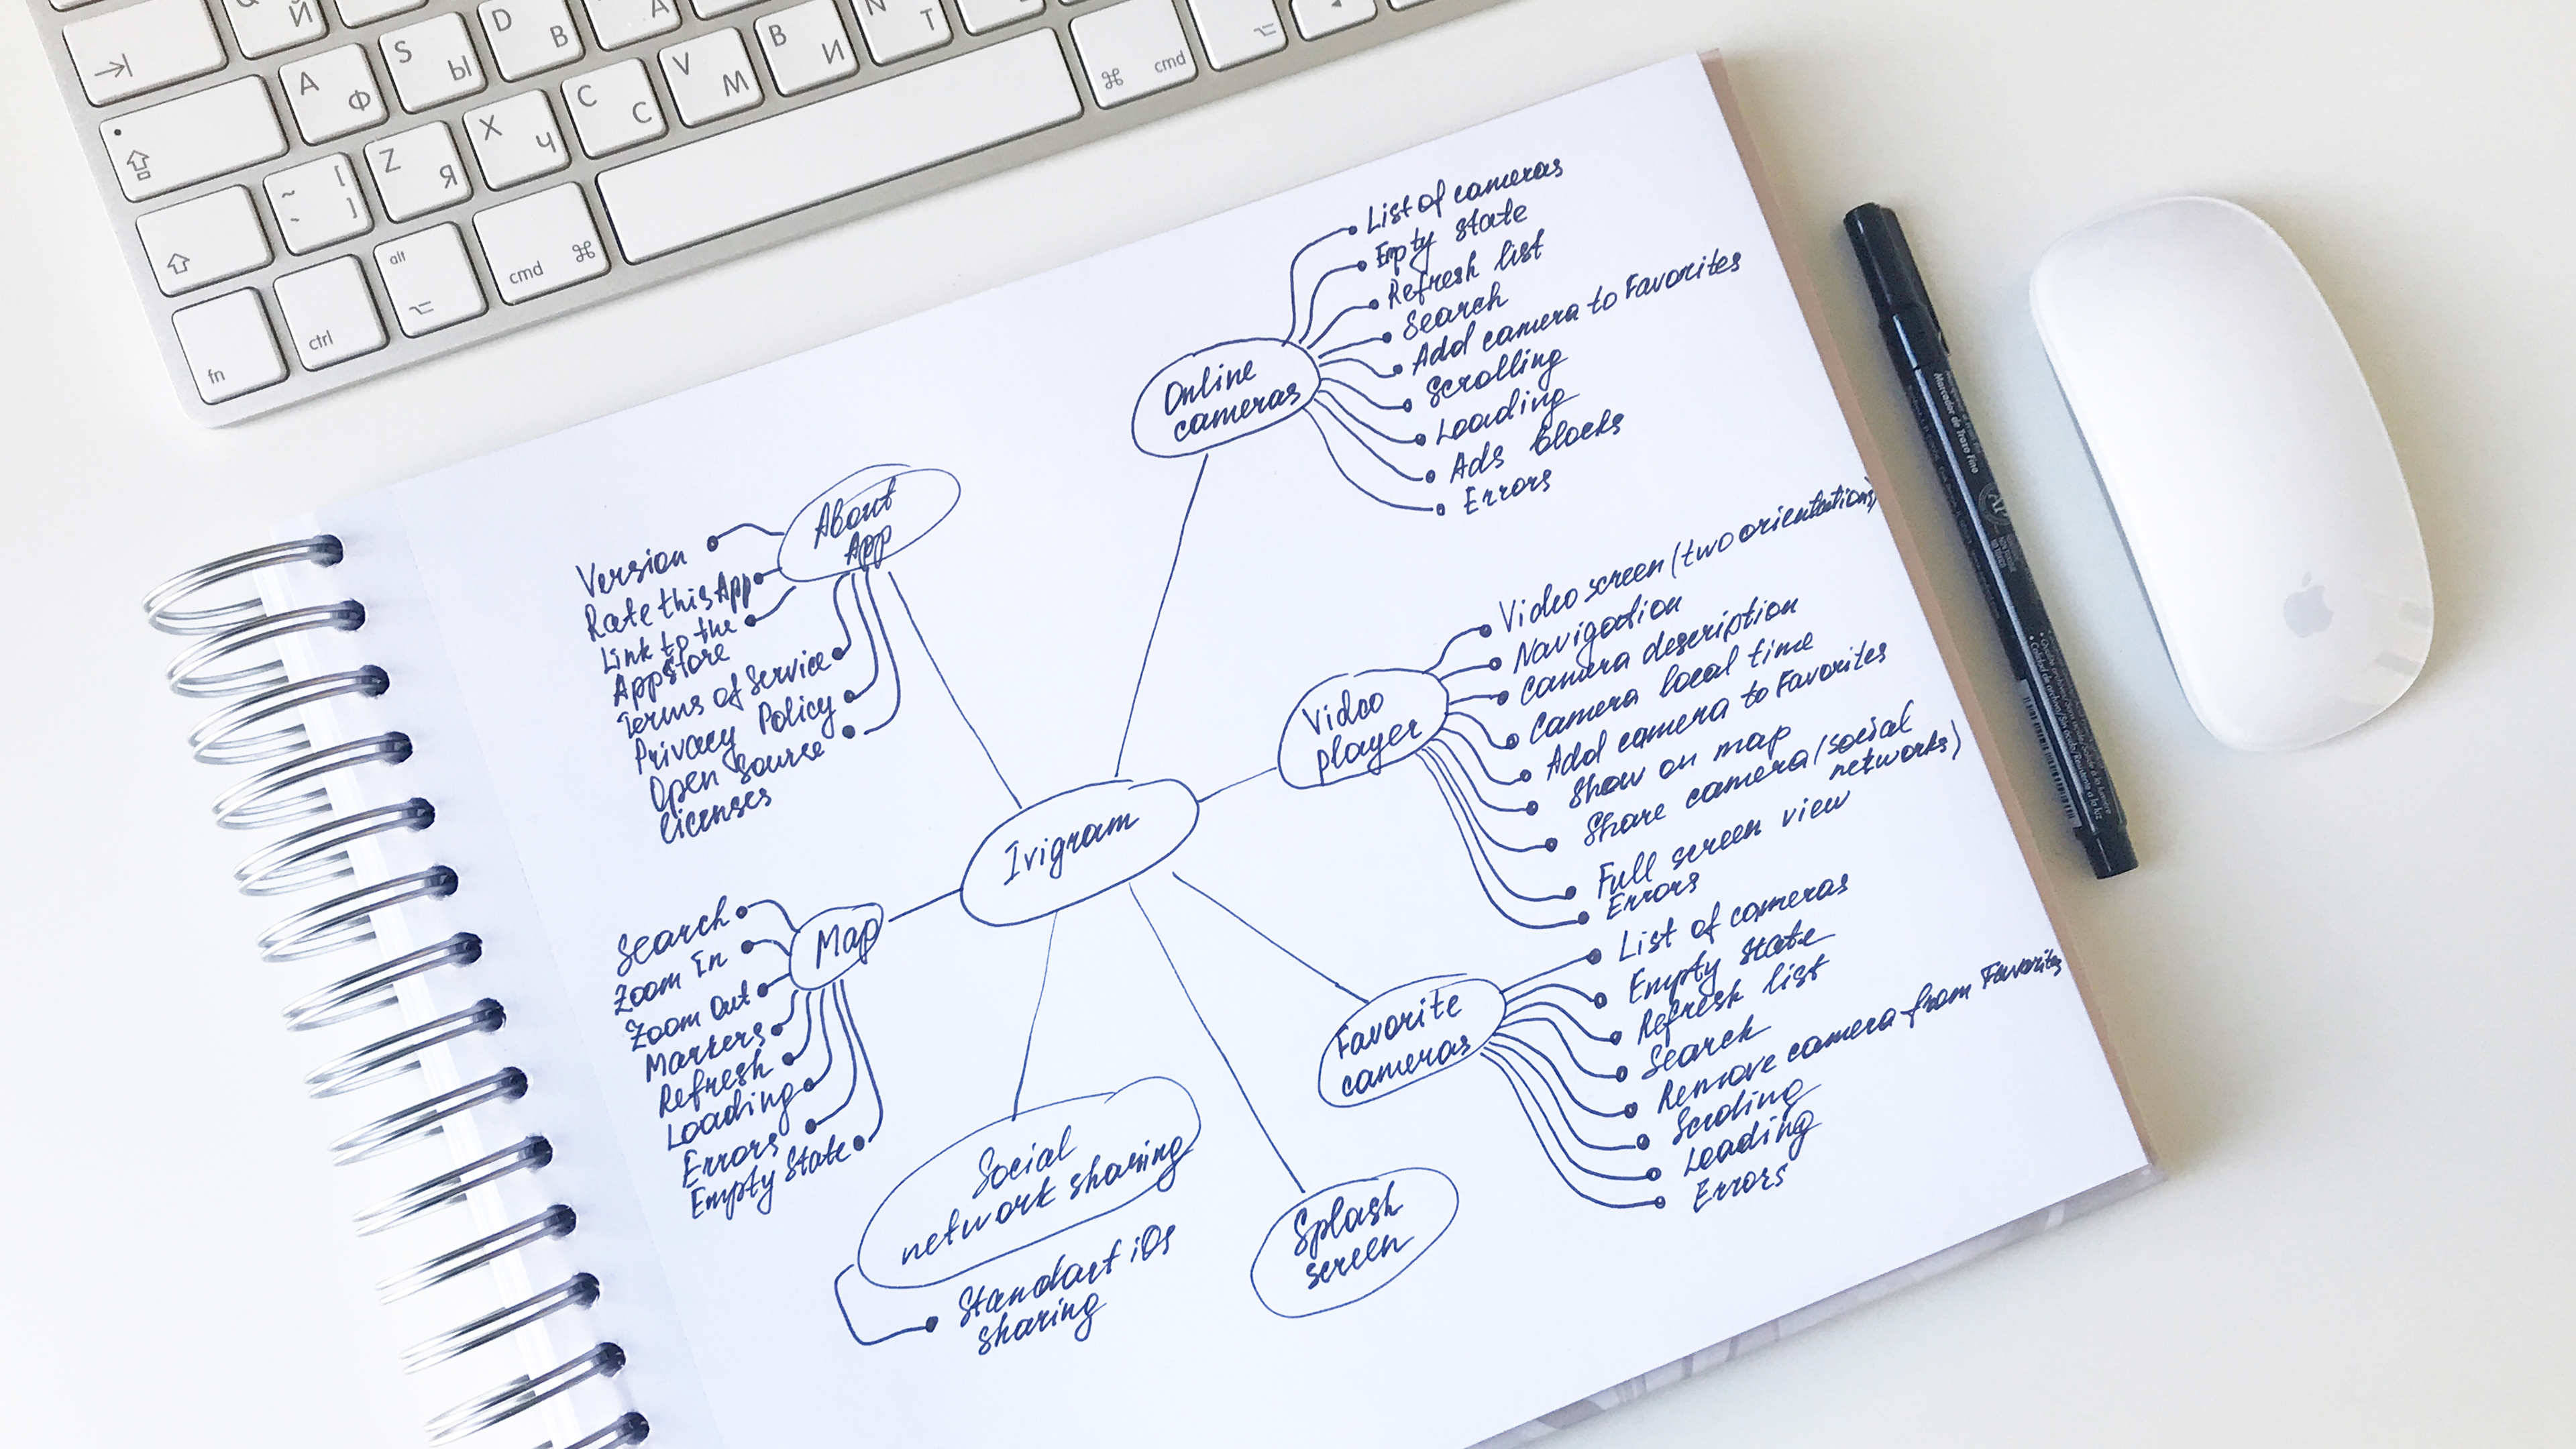 Й
S Ы
D В
А
A Ф
Z Я
X Ч
C С
V М
B И
N Т
~ [
` ]
⌘ cmd
⌥
fn
ctrl
alt
⌥
cmd ⌘
Online
cameras
List of cameras
Epty state
Refresh list
Search
Add camera to Favorites
Scrolling
Loading
Ads blocks
Errors
About
App
Version
Rate this App
Link to the
Appstore
Terms of Service
Privacy Policy
Open Source
licenses
Video
player
Video screen (two orientations)
Navigation
Camera description
Camera local time
Add camera to Favorites
Show on map
Share camera (social
networks)
Full screen view
Errors
Ivigram
Map
Search
Zoom In
Zoom Out
Markers
Refresh
Loading
Errors
Empty State
Favorite
cameras
List of cameras
Empty state
Refresh list
Search
Remove camera from Favorites
Scrolling
Loading
Errors
Social
network sharing
Standart iOs
sharing
Splash
screen
Marcador de Trazo Fino